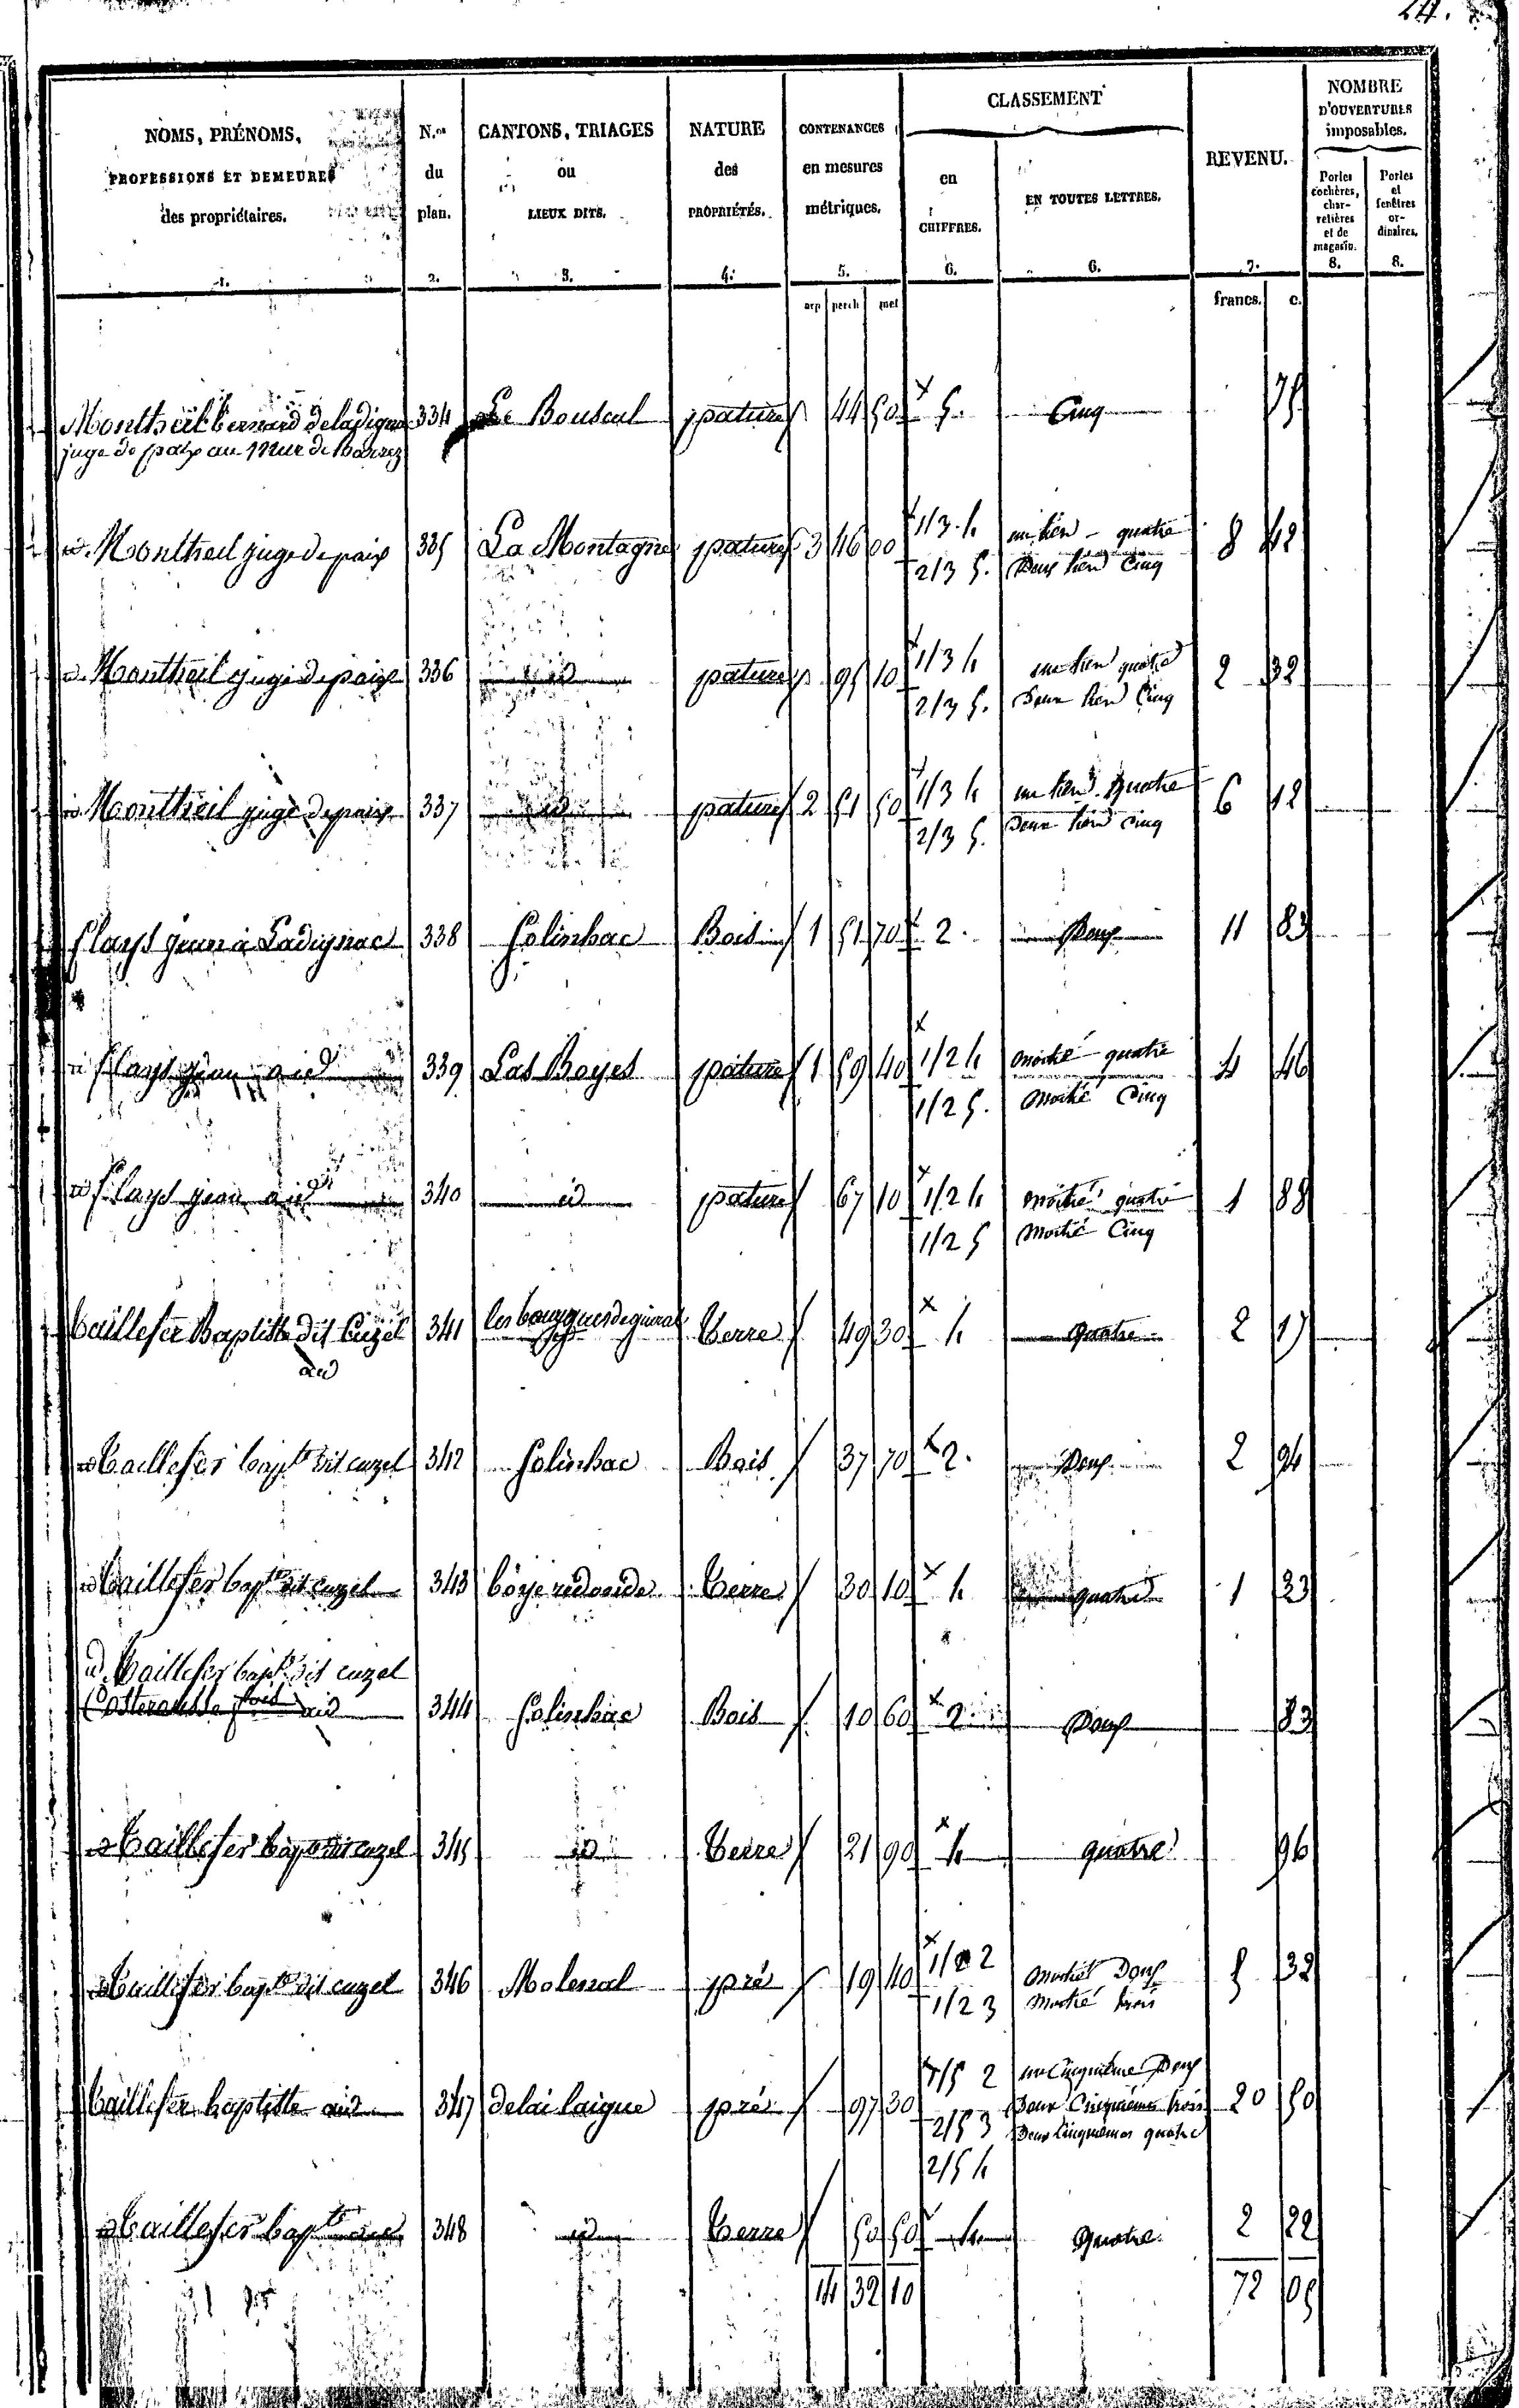 24.
NOMS, PRÉNOMS, PROFESSIONS ET DEMEURES des propriétaires. 1.
N.os du plan. 2.
CANTONS, TRIAGES ou LIEUX DITS. 3.
NATURE des PROPRIÉTÉS. 4.
CONTENANCES en mesures métriques. 5.
CLASSEMENT
en CHIFFRES. 6.
EN TOUTES LETTRES. 6.
REVENU. 7.
NOMBRE D'OUVERTURES imposables.
Portes cochères, charretières et de magasin. 8.
Portes et fenêtres ordinaires. 8.
arp perch met francs. c.
Montheil bernard de ladignac 334 Le Bouscul pature 44 50 5. Cinq 75
juge de paix au Mur de Barrez
id. Montheil juge de paix 335 La Montagne pature 3 46 00 1/3 4 un tierd - quatre 8 42
2/3 5. Deux tierd Cinq
id. Montheil juge de paix 336 id pature 95 10 1/3 4 un tierd quatre 2 32
2/3 5. Deux tierd Cinq
id. Montheil juge de paix 337 id pature 2 51 50 1/3 4 un tierd quatre 6 12
2/3 5. Deux tierd Cinq
flays jean à Ladignac 338 Golinhac Bois 1 51 70 2. Deux 11 83
id flays jean a id 339 Las Boyes pature 1 59 40 1/2 4 moitié quatre 4 46
1/2 5. moitié Cinq
id flays jean a id 340 id pature 67 10 1/2 4 moitié quatre 1 88
1/2 5 moitié Cinq
taillefer Baptiste dit Cuzel 341 les bourgues de Terre 49 30 4 quatre 2 17
a id
id taillefer bapte dit cuzel 342 Golinhac Bois 37 70 2. Deux 2 94
id taillefer bapte dit cuzel 343 boye redonde Terre 30 10 4 quatre 1 33
id taillefer bapte dit cuzel
a id 344 Golinhac Bois 10 60 2 Deux 83
id taillefer bapte dit cuzel 345 id Terre 21 90 4 quatre 96
id taillefer bapte dit cuzel 346 Molenal pré 19 40 1/2 2 moitié Deux 5 32
1/2 3 moitié trois
taillefer baptiste a id 347 delai laigue pré 97 30 1/5 2 un Cinquième Deux 20 50
2/5 3 Deux Cinquièmes trois
2/5 4 Deux Cinquièmes quatre
id taillefer bapte a id 348 id Terre 50 50 4 quatre 2 22
14 32 10 72 05